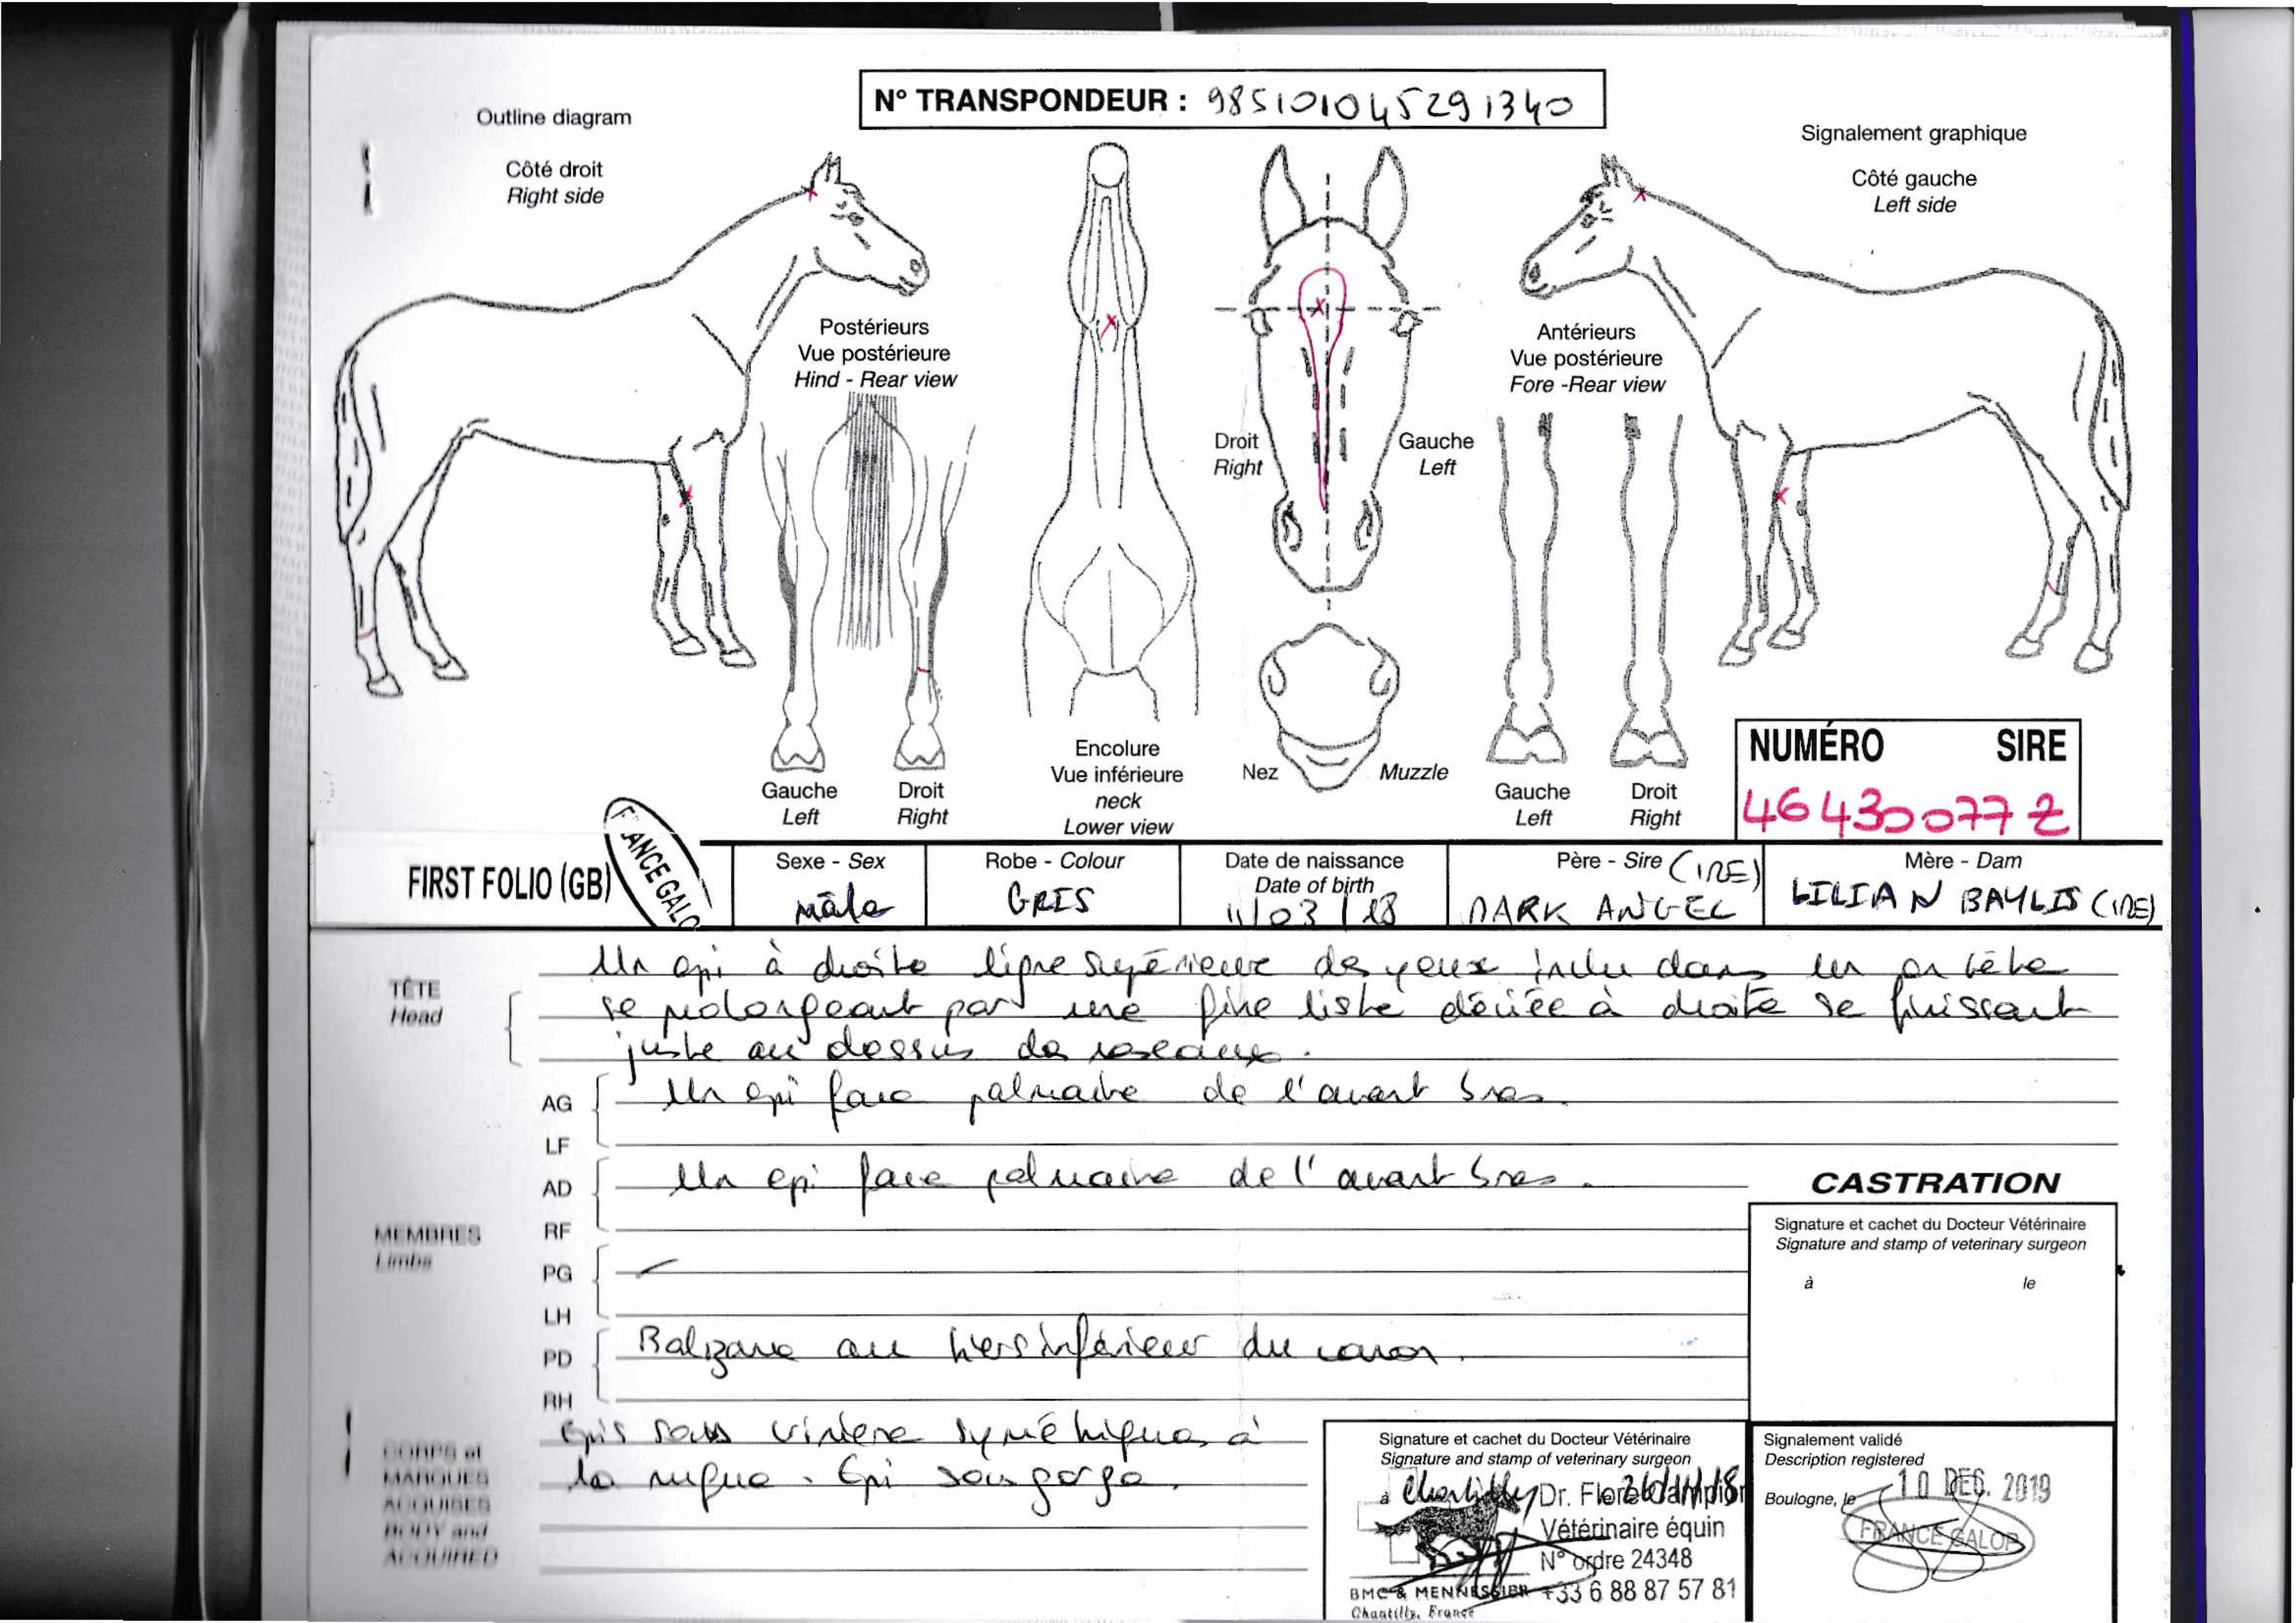 N° TRANSPONDEUR : 985101045291340
Outline diagram
Signalement graphique
Côté droit
Right side
Côté gauche
Left side
Postérieurs
Vue postérieure
Hind - Rear view
Antérieurs
Vue postérieure
Fore -Rear view
Droit
Right
Gauche
Left
Gauche
Left
Droit
Right
Encolure
Vue inférieure
neck
Lower view
Nez
Muzzle
Gauche
Left
Droit
Right
NUMÉRO SIRE
46430077Z
FIRST FOLIO (GB)
ANCE GALO
Sexe - Sex
mâle
Robe - Colour
GRIS
Date de naissance
Date of birth
11/03/18
Père - Sire (IRE)
DARK ANGEL
Mère - Dam
LILIAN BAYLIS (IRE)
TÊTE
Head
Un epi à droite ligne supérieure des yeux inclu dans un en tête
se prolongeant par une fine liste déviée à droite se finissant
juste au dessus des naseaux.
AG
LF
Un epi face palmaire de l'avant bras.
AD
RF
Un epi face palmaire de l'avant bras.
MEMBRES
Limbs
PG
LH
PD
RH
Balzane au tiers inférieur du canon.
CORPS et
MARQUES
ACQUISES
BODY and
ACQUIRED
Epis sous crinière symétriques à
la nuque. Epi sous gorge.
CASTRATION
Signature et cachet du Docteur Vétérinaire
Signature and stamp of veterinary surgeon
à le
Signature et cachet du Docteur Vétérinaire
Signature and stamp of veterinary surgeon
à Chantilly
Dr.
Vétérinaire équin
N° ordre 24348
BMC & MENNESSIER +33 6 88 87 57 81
Chantilly, France
Signalement validé
Description registered
Boulogne, le 10 DEC. 2019
FRANCE GALOP